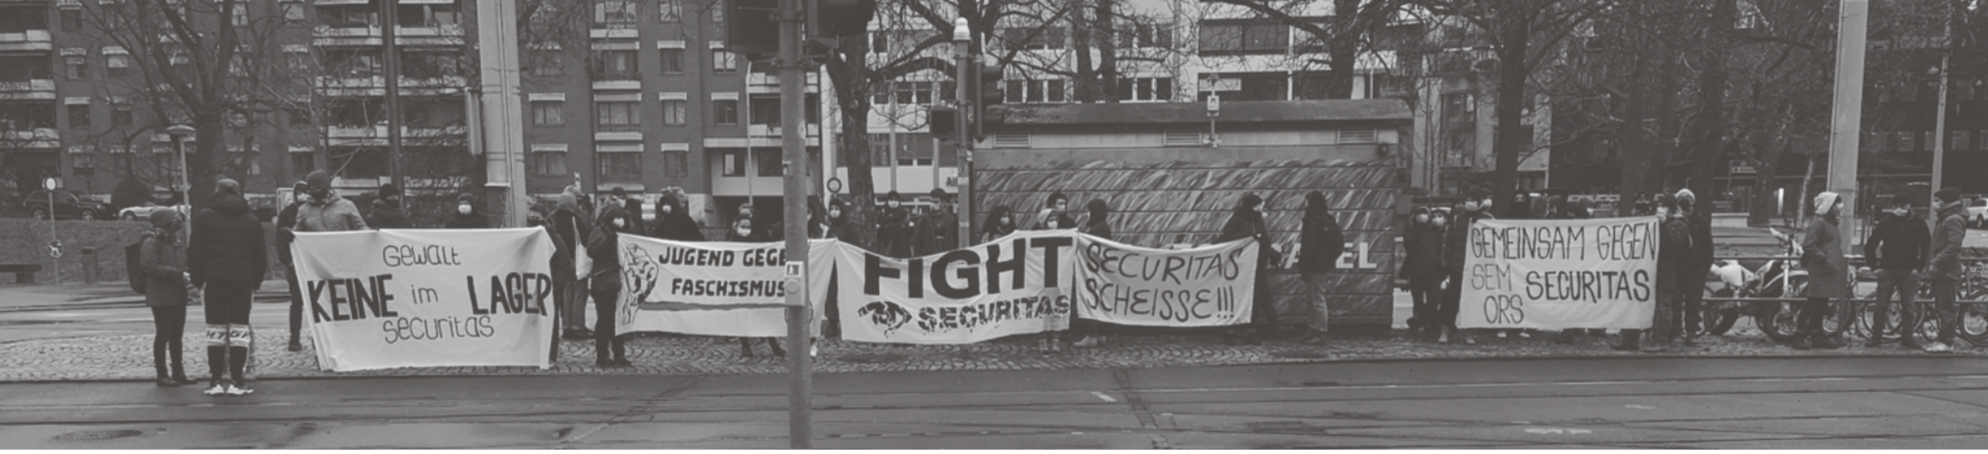 Gewalt
KEINE im LAGER
securitas
JUGEND GEGE
FASCHISMUS
FIGHT
SECURITAS
SECURITAS
SCHEISSE!!!
GEMEINSAM GEGEN
SEM SECURITAS
ORS